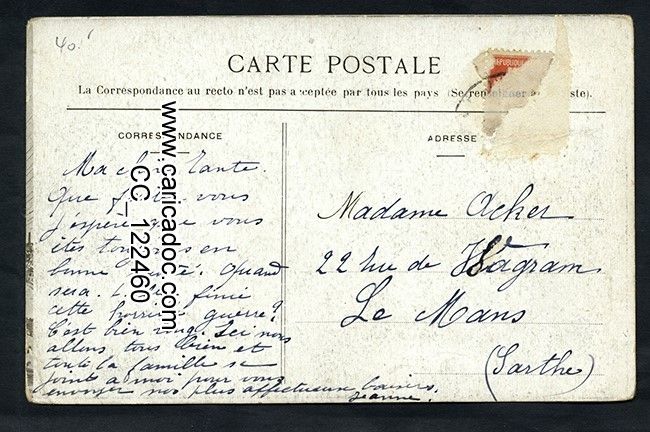 40.
CARTE POSTALE
REPUBLIQUE
La Correspondance au recto n'est pas acceptée par tous les pays (Se renseigner
CORRESPONDANCE
ADRESSE
Ma chère Tante.
Que vous
J'espère que vous
êtes toujours en
bonne santé. Quand
sera finie
cette horrible guerre?
C'est bien long. Ici nous
allons tous bien et
toute la famille se
joint à moi pour vous
envoyer nos plus affectueux baisers.
Jeanne.
Madame Acker
22 rue de Wagram
Le Mans
(Sarthe)
www.caricadoc.com
CC_122460